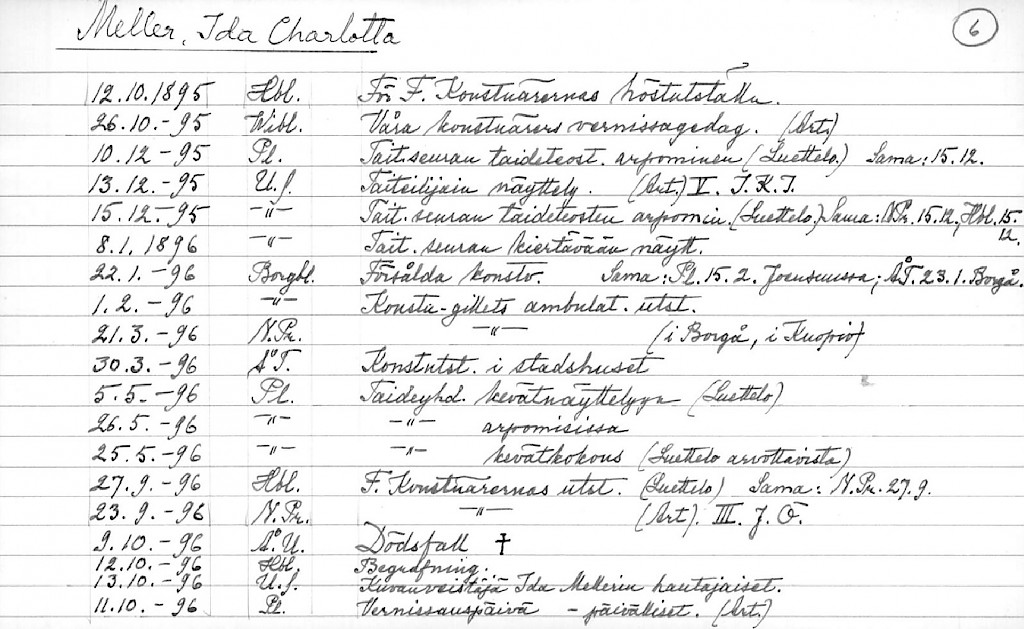 Meller, Ida Charlotta
6
12.10.1895 Hbl. För F. Konstnärernas höstutställn.
26.10.-95 Wibl. Våra konstnärers vernissagedag. (Art.)
10.12-95 Pl. Tait.seuran taideteost. arpominen (Luettelo.) Sama: 15.12.
13.12.-95 U.S. Taiteilijain näyttely. (Art.) V. J.K.I.
15.12.-95 -"- Tait. seuran taideteosten arpomin. (Luettelo.) Sama: N.Pr. 15.12, Hbl. 15.12.
8.1.1896 -"- Tait. seuran kiertävään näytt.
22.1.-96 Borgbl. Försålda konstv. Sama: Pl. 15.2. Joensuussa; Å.T. 23.1. Borgå.
1.2.-96 -"- Konstn-gillets ambulat. utst.
21.3.-96 N.Pr. -"- (i Borgå, i Kuopio)
30.3.-96 Å.T. Konstutst. i stadshuset
5.5.-96 Pl. Taideyhd. kevätnäyttelyyn (Luettelo)
26.5.-96 -"- -"- arpomisissa
25.5.-96 -"- -"- kevätkokous (Luettelo arvottavista)
27.9.-96 Hbl. F. Konstnärernas utst. (Luettelo) Sama: N.Pr. 27.9.
23.9.-96 N.Pr. -"- (Art.) III. J.Ö.
9.10.-96 Å.U. Dödsfall †
12.10.-96 Hbl. Begrafning.
13.10.-96 U.S. Kuvanveistäjä Ida Mellerin hautajaiset.
11.10.-96 Pl. Vernissauspäivä - päivälliset. (Art.)